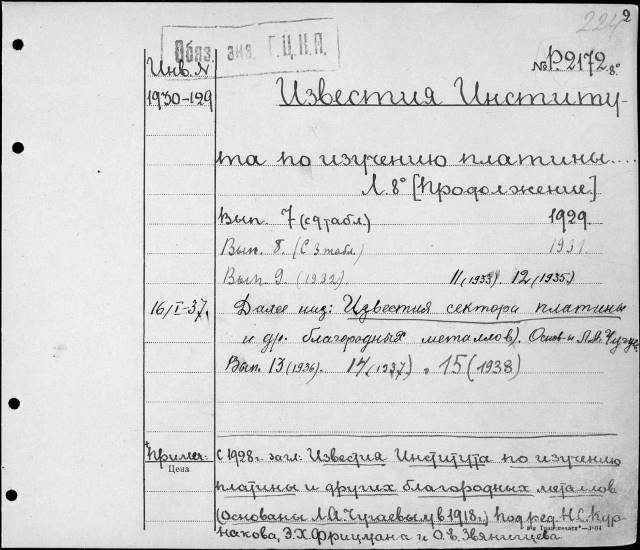 224 2
Обяз. экз. Г.Ц.К.П.
Инв. №
№ Р.2172 8°
1930-129
Известия Институ-
та по изучению платины....
Л. 8° [Продолжение]
Вып. 7 (с 9 табл.) 1929.
Вып. 8. (С 3 табл.) 1931.
Вып. 9. (1932). 11 (1933). 12 (1935)
16/I-37. Далее наз: Известия сектора платины
и др. благородных металлов). Основ-ы Л.А. Чугае
Вып. 13 (1936). 14 (1937), 15 (1938)
Примеч:
Цена
С 1928 г. загл: Известия Института по изучению
платины и других благородных металлов
(Основаны Л.А. Чугаевым в 1918 г.) Под ред. Н.С. Кур-
накова, Э.Х. Фрицмана и О.Е. Звягинцева